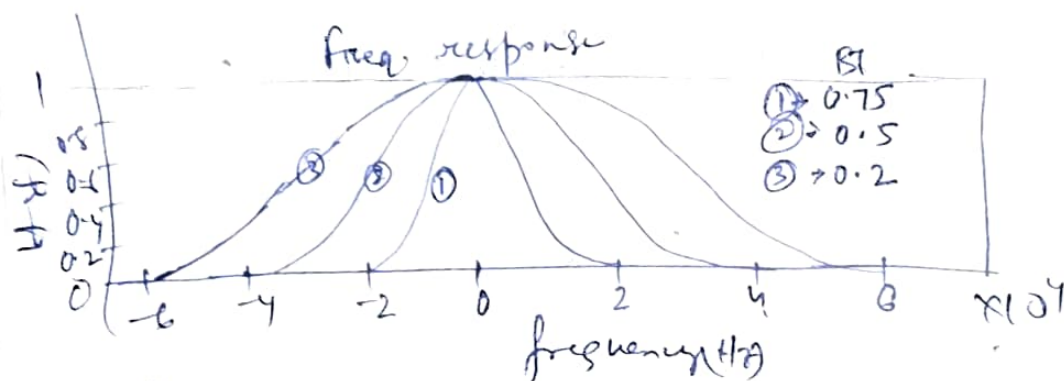 Freq. response
BT
① → 0.75
② → 0.5
③ → 0.2
1
0.8
0.6
0.4
0.2
0
③ ② ①
-6 -4 -2 0 2 4 6 ×10⁴
frequency(Hz)